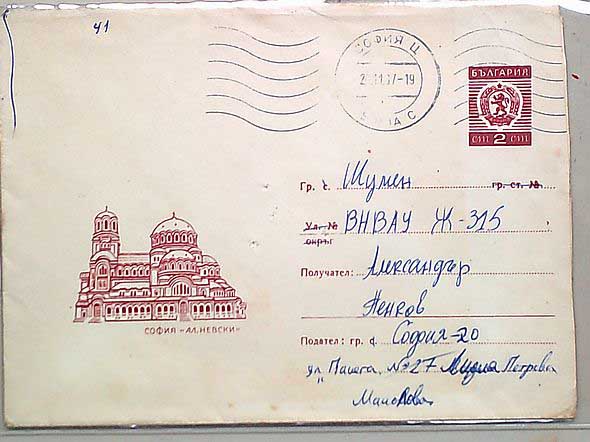 41
СОФИЯ Ц
-19
БЪЛГАРИЯ
СТ 2 СТ
Гр. с. Шумен гр. ст. №
Ул. № ВНВАУ Ж-315
окръг
Получател: Александър
Пенков
СОФИЯ - "АЛ. НЕВСКИ"
Подател: гр. ф. София-20
ул. "Панега" №27 Лидия Петрова